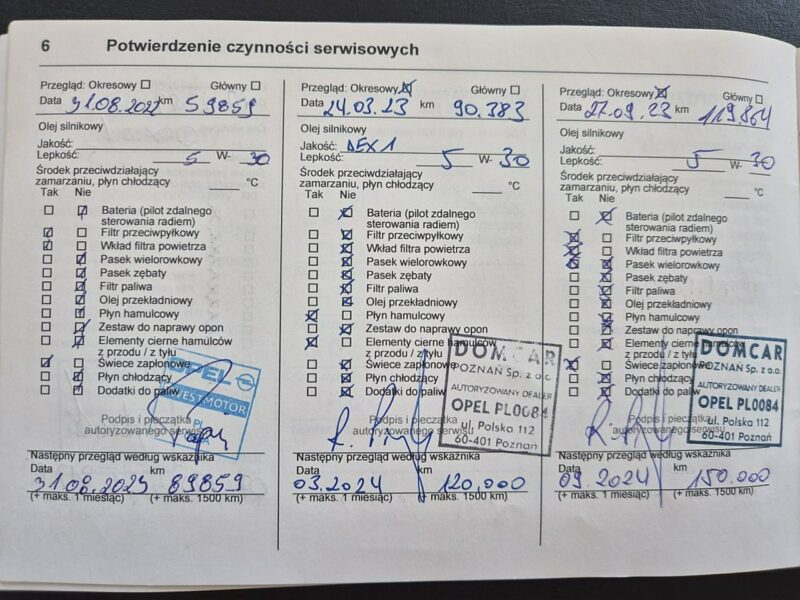 6 Potwierdzenie czynności serwisowych
Przegląd: Okresowy Główny
Data 31.08.2022 km 59859
Olej silnikowy
Jakość:
Lepkość: 5 W- 30
Środek przeciwdziałający
zamarzaniu, płyn chłodzący °C
Tak Nie
Bateria (pilot zdalnego
sterowania radiem)
Filtr przeciwpyłkowy
Wkład filtra powietrza
Pasek wielorowkowy
Pasek zębaty
Filtr paliwa
Olej przekładniowy
Płyn hamulcowy
Zestaw do naprawy opon
Elementy cierne hamulców
z przodu / z tyłu
Świece zapłonowe
Płyn chłodzący
Dodatki do paliw
OPEL
WESTMOTOR
Podpis i pieczątka
autoryzowanego serwisu
Następny przegląd według wskaźnika
Data km
31.08.2023 89859
(+ maks. 1 miesiąc) (+ maks. 1500 km)
Przegląd: Okresowy Główny
Data 24.03.23 km 90.383
Olej silnikowy
Jakość: DEX1
Lepkość: 5 W- 30
Środek przeciwdziałający
zamarzaniu, płyn chłodzący °C
Tak Nie
Bateria (pilot zdalnego
sterowania radiem)
Filtr przeciwpyłkowy
Wkład filtra powietrza
Pasek wielorowkowy
Pasek zębaty
Filtr paliwa
Olej przekładniowy
Płyn hamulcowy
Zestaw do naprawy opon
Elementy cierne hamulców
z przodu / z tyłu
Świece zapłonowe
Płyn chłodzący
Dodatki do paliw
DOMCAR
POZNAŃ Sp. z o.o.
AUTORYZOWANY DEALER
OPEL PL0084
ul. Polska 112
60-401 Poznań
Podpis i pieczątka
autoryzowanego serwisu
Następny przegląd według wskaźnika
Data km
03.2024 120.000
(+ maks. 1 miesiąc) (+ maks. 1500 km)
Przegląd: Okresowy Główny
Data 27.09.23 km 119.864
Olej silnikowy
Jakość:
Lepkość: 5 W- 30
Środek przeciwdziałający
zamarzaniu, płyn chłodzący °C
Tak Nie
Bateria (pilot zdalnego
sterowania radiem)
Filtr przeciwpyłkowy
Wkład filtra powietrza
Pasek wielorowkowy
Pasek zębaty
Filtr paliwa
Olej przekładniowy
Płyn hamulcowy
Zestaw do naprawy opon
Elementy cierne hamulców
z przodu / z tyłu
Świece zapłonowe
Płyn chłodzący
Dodatki do paliw
DOMCAR
POZNAŃ Sp. z o.o.
AUTORYZOWANY DEALER
OPEL PL0084
ul. Polska 112
60-401 Poznań
Podpis i pieczątka
autoryzowanego serwisu
Następny przegląd według wskaźnika
Data km
09.2024 150.000
(+ maks. 1 miesiąc) (+ maks. 1500 km)